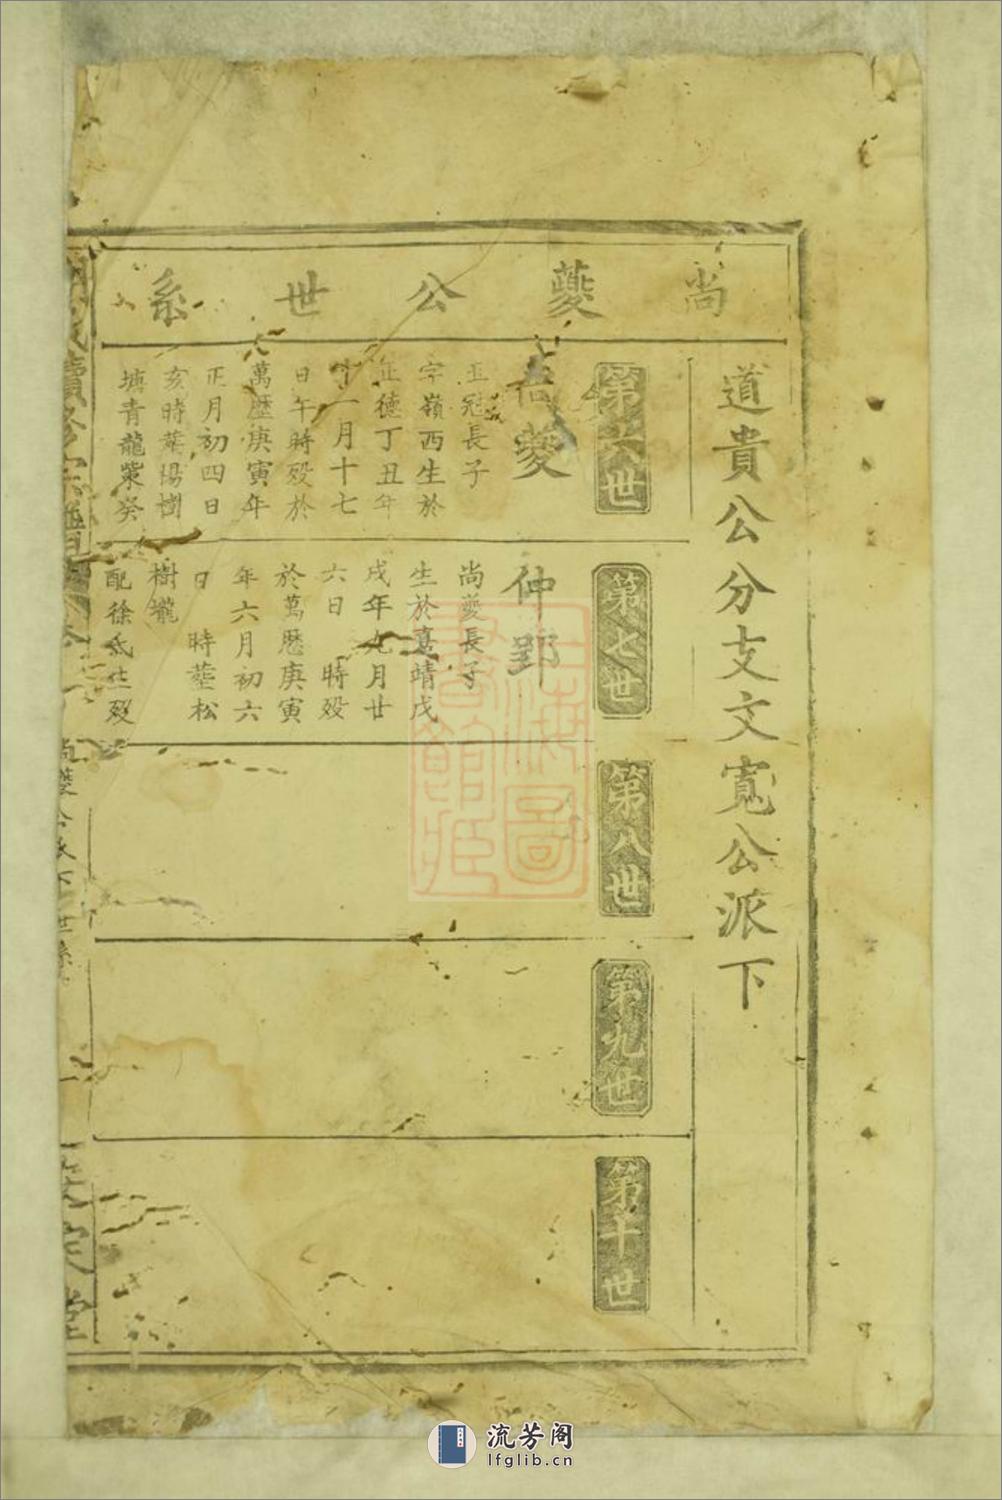 尚夔公世系
道貴公分支文寬公派下
第六世
尚夔
玉冠長子
字嶺西生於
正德丁丑年
十一月十七
日午時殁於
萬歷庚寅年
正月初四日
亥時葬楊樹
塘青龍嘴癸
第七世
仲郢
尚夔長子
生於嘉靖戊
戌年九月廿
六日 時殁
於萬歷庚寅
年六月初六
日 時塟松
樹壠
配徐氏生殁
第八世
第九世
第十世
續修宗譜
尚夔公派下世系
上海圖書館藏
流芳阁
lfglib.cn